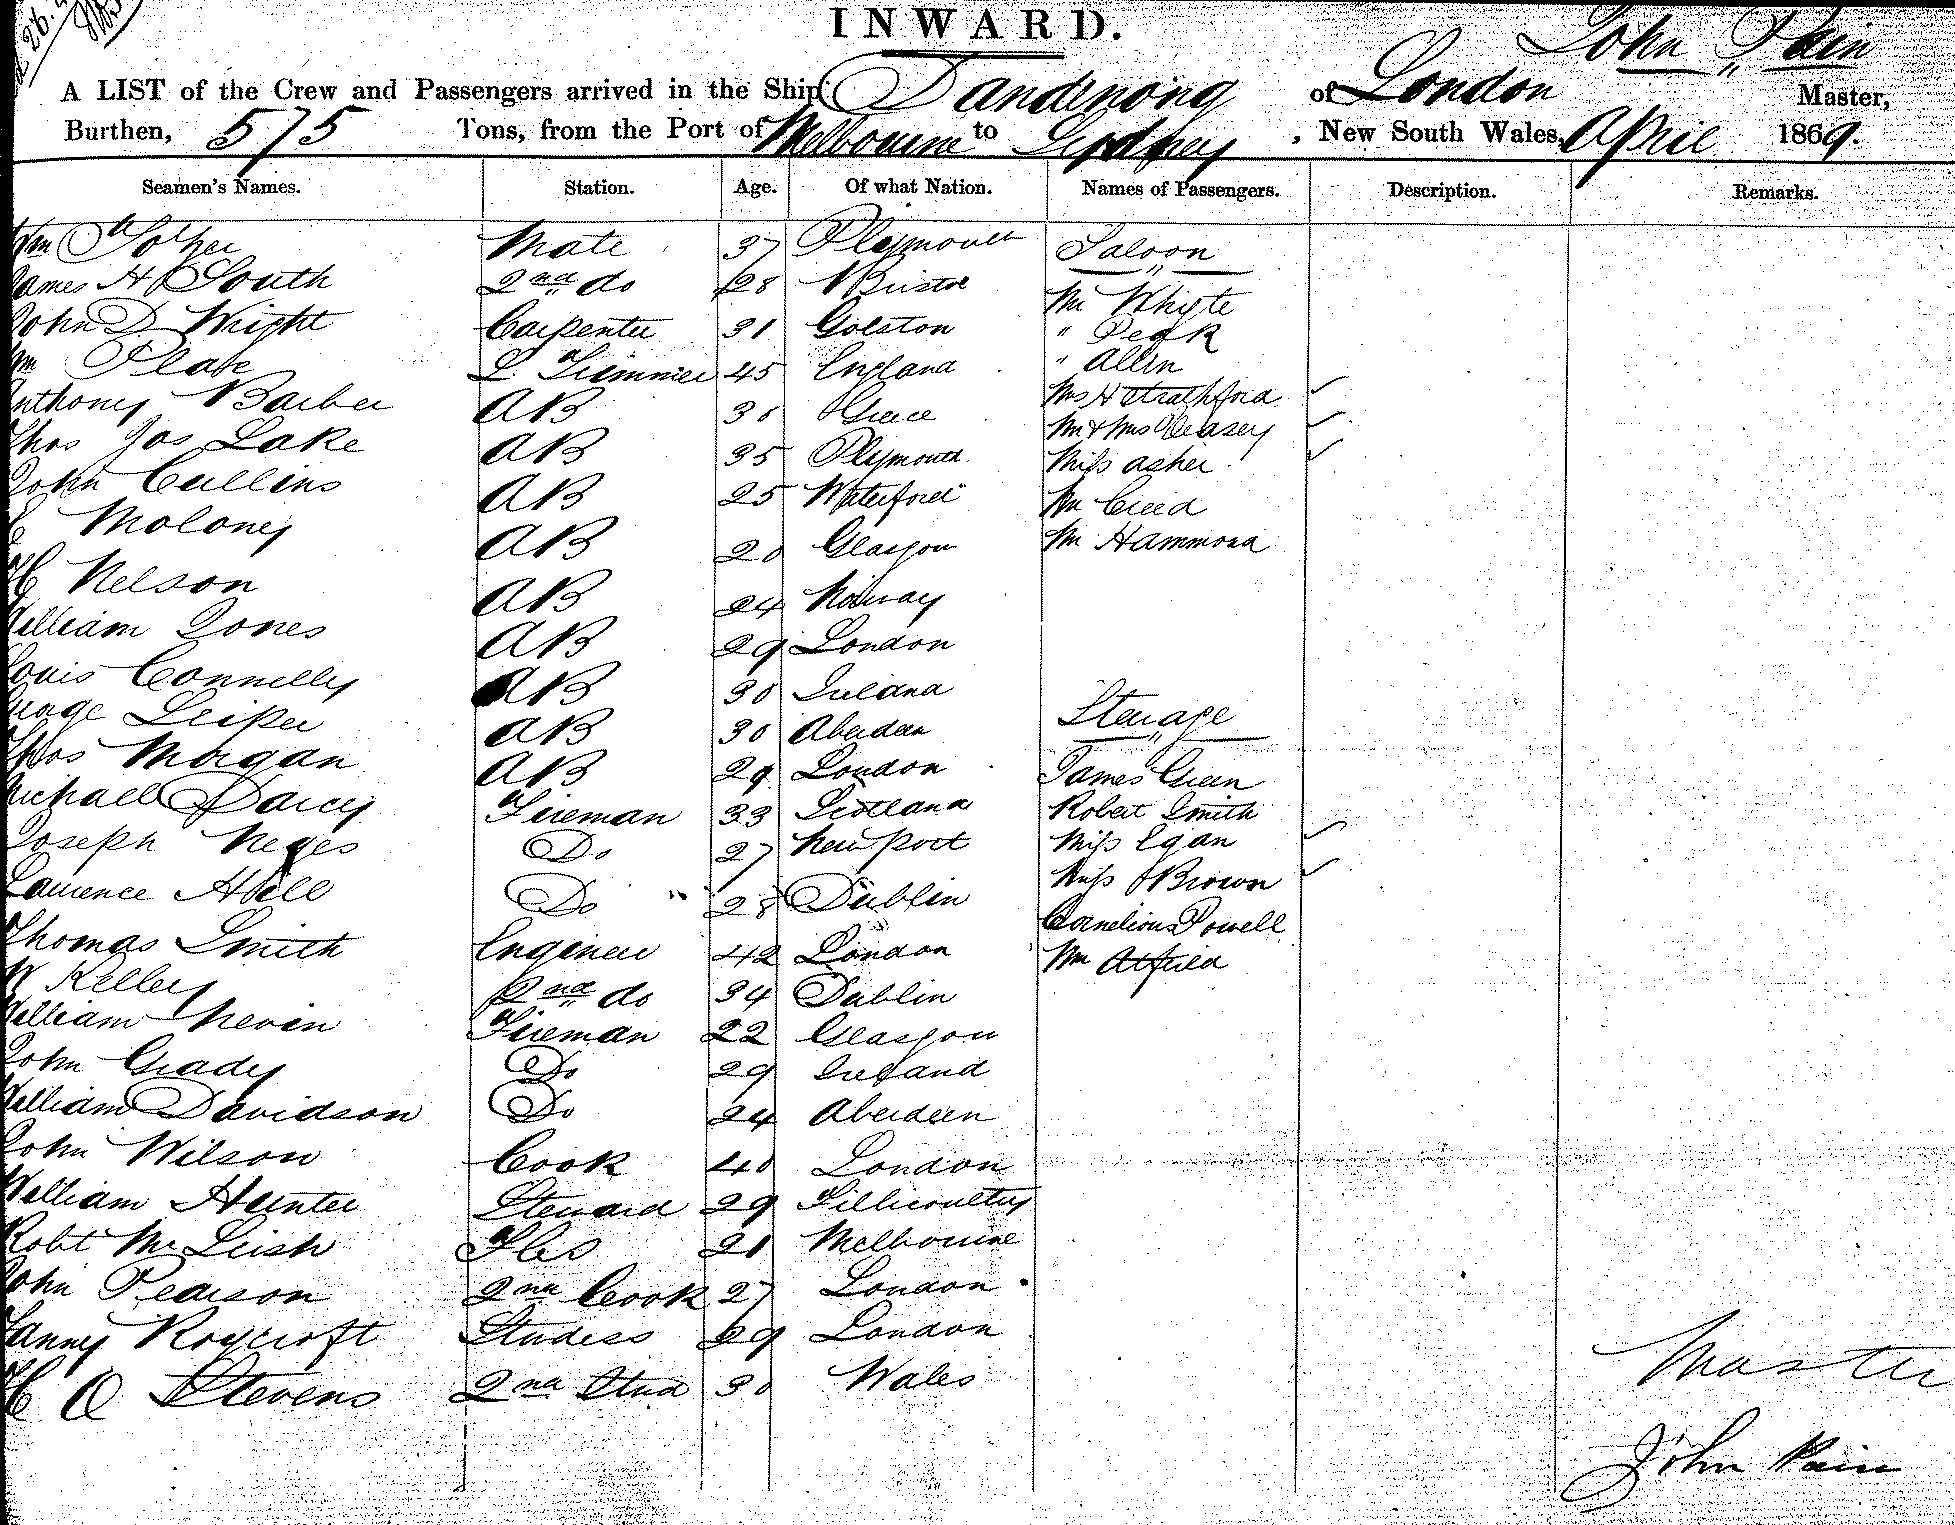 INWARD.
John Pain
A LIST of the Crew and Passengers arrived in the Ship Dandenong of London Master,
Burthen, 575 Tons, from the Port of Melbourne to Sydney, New South Wales, April 1869.
Seamen's Names. Station. Age. Of what Nation. Names of Passengers. Description. Remarks.
Mate 37 Plymouth Saloon
James H South 2nd do 28 Bristol Mr Whyte
John D Wright Carpenter 31 Golston " Peak
Wm Plate L. Trimmer 45 England " Allen
Anthony Barber AB 30 Greece Mrs H Strathford
Thos Jos Lake AB 35 Plymouth Mr & Mrs
John Cullins AB 25 Waterford Miss Asher
Moloney AB 20 Glasgow Mr Creed
H Nelson AB 24 Norway Mr Hammond
William Jones AB 29 London
Louis Connelly AB 30 Ireland
George Leiper AB 30 Aberdeen Sterrage
Thos Morgan AB 29 London James Green
Michael Darcy Fireman 33 Scotland Robert Smith
Joseph Do 27 New port Miss Egan
Laurence Hill Do 28 Dublin Miss Brown
Thomas Smith Engineer 42 London Cornelious Powell
W Kelley 2nd do 34 Dublin Mr
William Nevin Fireman 22 Glasgow
John Grady Do 29 Ireland
William Davidson Do 24 Aberdeen
John Wilson Cook 40 London
William Hunter Steward 29 Tillicoultry
Robt McLeish 21 Melbourne
John Pearson 2nd Cook 27 London
Fanny Roycroft Studess 29 London
H O Stevens 2nd Stud 30 Wales
Master
John Pain